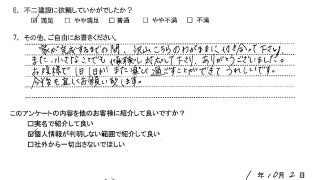 6. 不二建設に依頼していかがでしたか？
☑ 満足 □ やや満足 □ 普通 □ やや不満 □ 不満
7. その他、ご自由にお書きください。
家が完成するまでの間、沢山こちらのわがままに付き合って下さり
また、小さなことでも 対応して下さり、ありがとうございました。
お陰様で 1日1日が また楽しく過ごすことができて うれしいです。
今後も宜しくお願い致します。
このアンケートの内容を他のお客様に紹介して良いですか？
□実名で紹介して良い
☑個人情報が判明しない範囲で紹介して良い
□社外から一切出さないでほしい
1 年 10 月 2 日